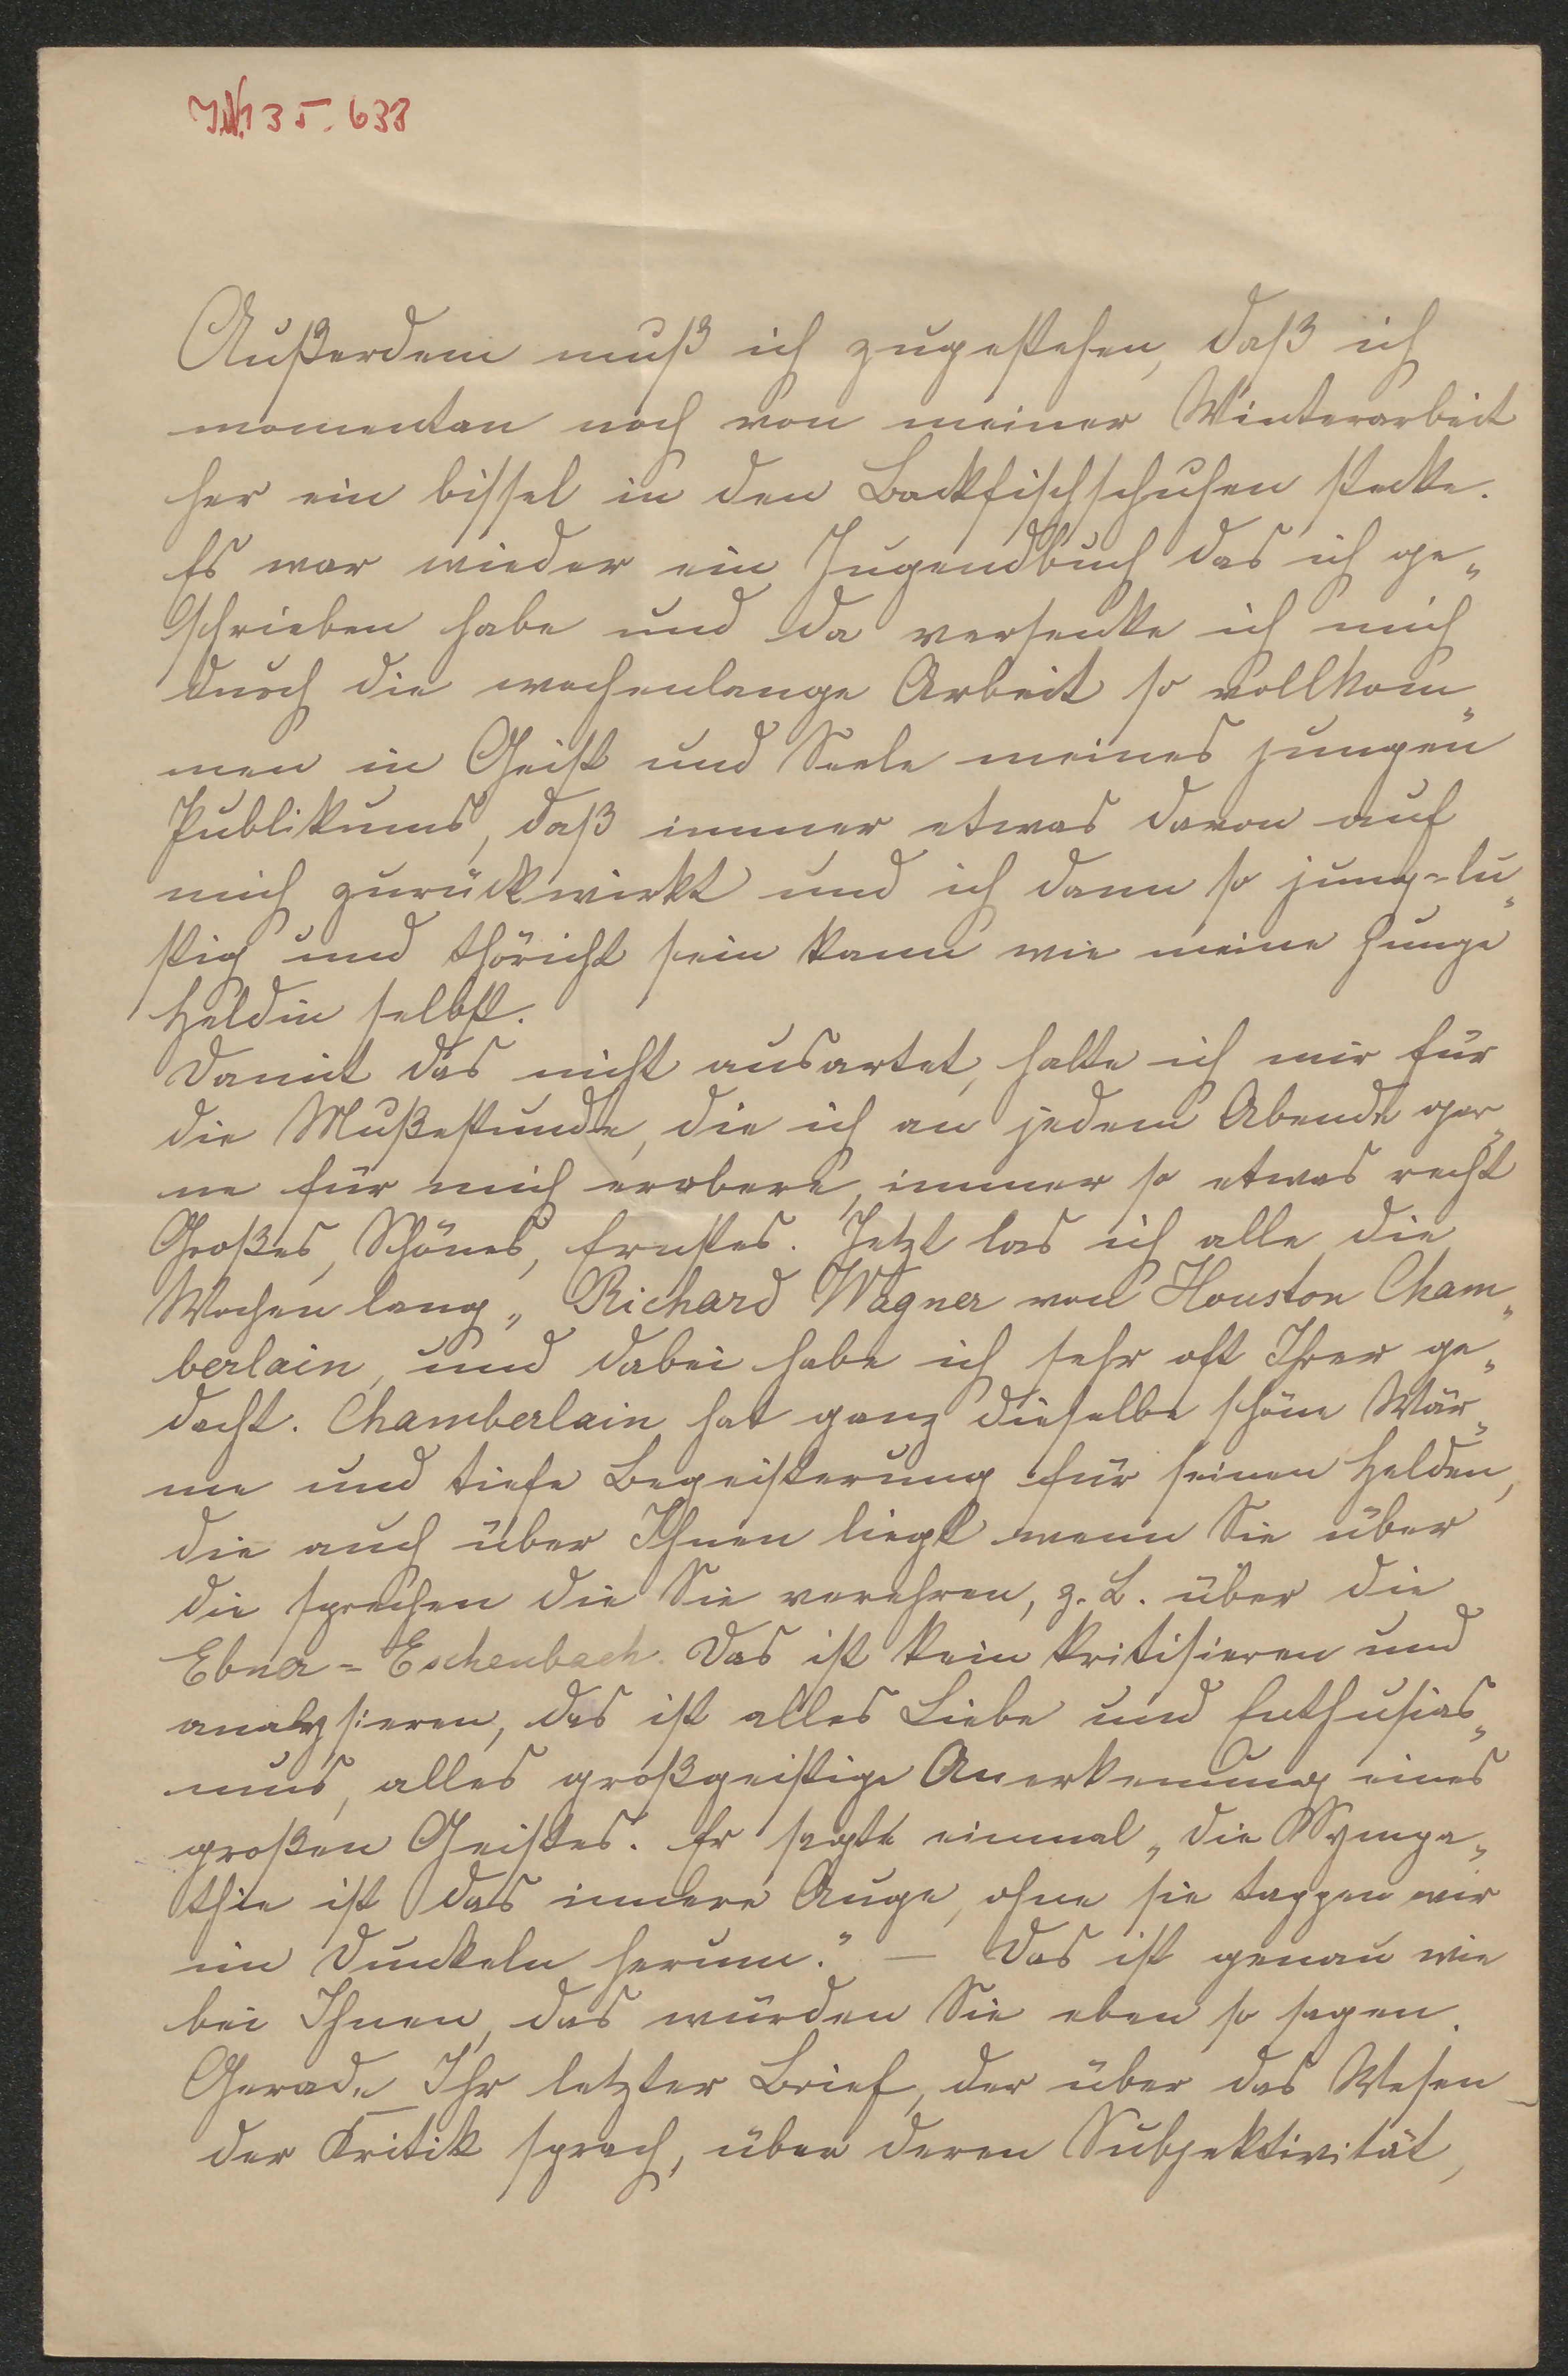 I.N. 135.638
Außerdem muß ich zugestehen, daß ich
momentan noch von meiner Winterarbeit
her ein bissel in den Backfischschuhen stecke.
Es war wieder ein Jugendbuch das ich ge„
schrieben habe und da versenke ich mich
durch die wochenlange Arbeit so vollkom„
men in Geist und Seele meines jungen
Publikums, daß immer etwas davon auf
mich zurückwirkt und ich dann so jung-lu„
stig und thöricht sein kann wie meine junge
Heldin selbst.
Damit das nicht ausartet, halte ich mir für
die Mußestunde, die ich an jedem Abende ger„
ne für mich erobere, immer so etwas recht
Großes, Schönes, Ernstes. Jetzt las ich alle die
Wochen lang „Richard Wagner von Houston Cham„
berlain, und dabei habe ich sehr oft Ihrer ge„
dacht. Chamberlain hat ganz dieselbe schöne Wär„
me und tiefe Begeisterung für seinen Helden,
die auch über Ihnen liegt wenn Sie über
die sprechen die Sie verehren, z. B. über die
Ebner-Eschenbach. Das ist kein kritisieren und
analysieren, das ist alles Liebe und Enthusias„
mus, alles großgeistige Anerkennung eines
großen Geistes. Er sagte einmal „die Sympa„
thie ist das innere Auge, ohne sie tappen wir
im Dunkeln herum." — Das ist genau wie
bei Ihnen, das würden Sie eben so sagen.
Gerade Ihr letzter Brief, der über das Wesen
der Kritik sprach, über deren Subjektivität,